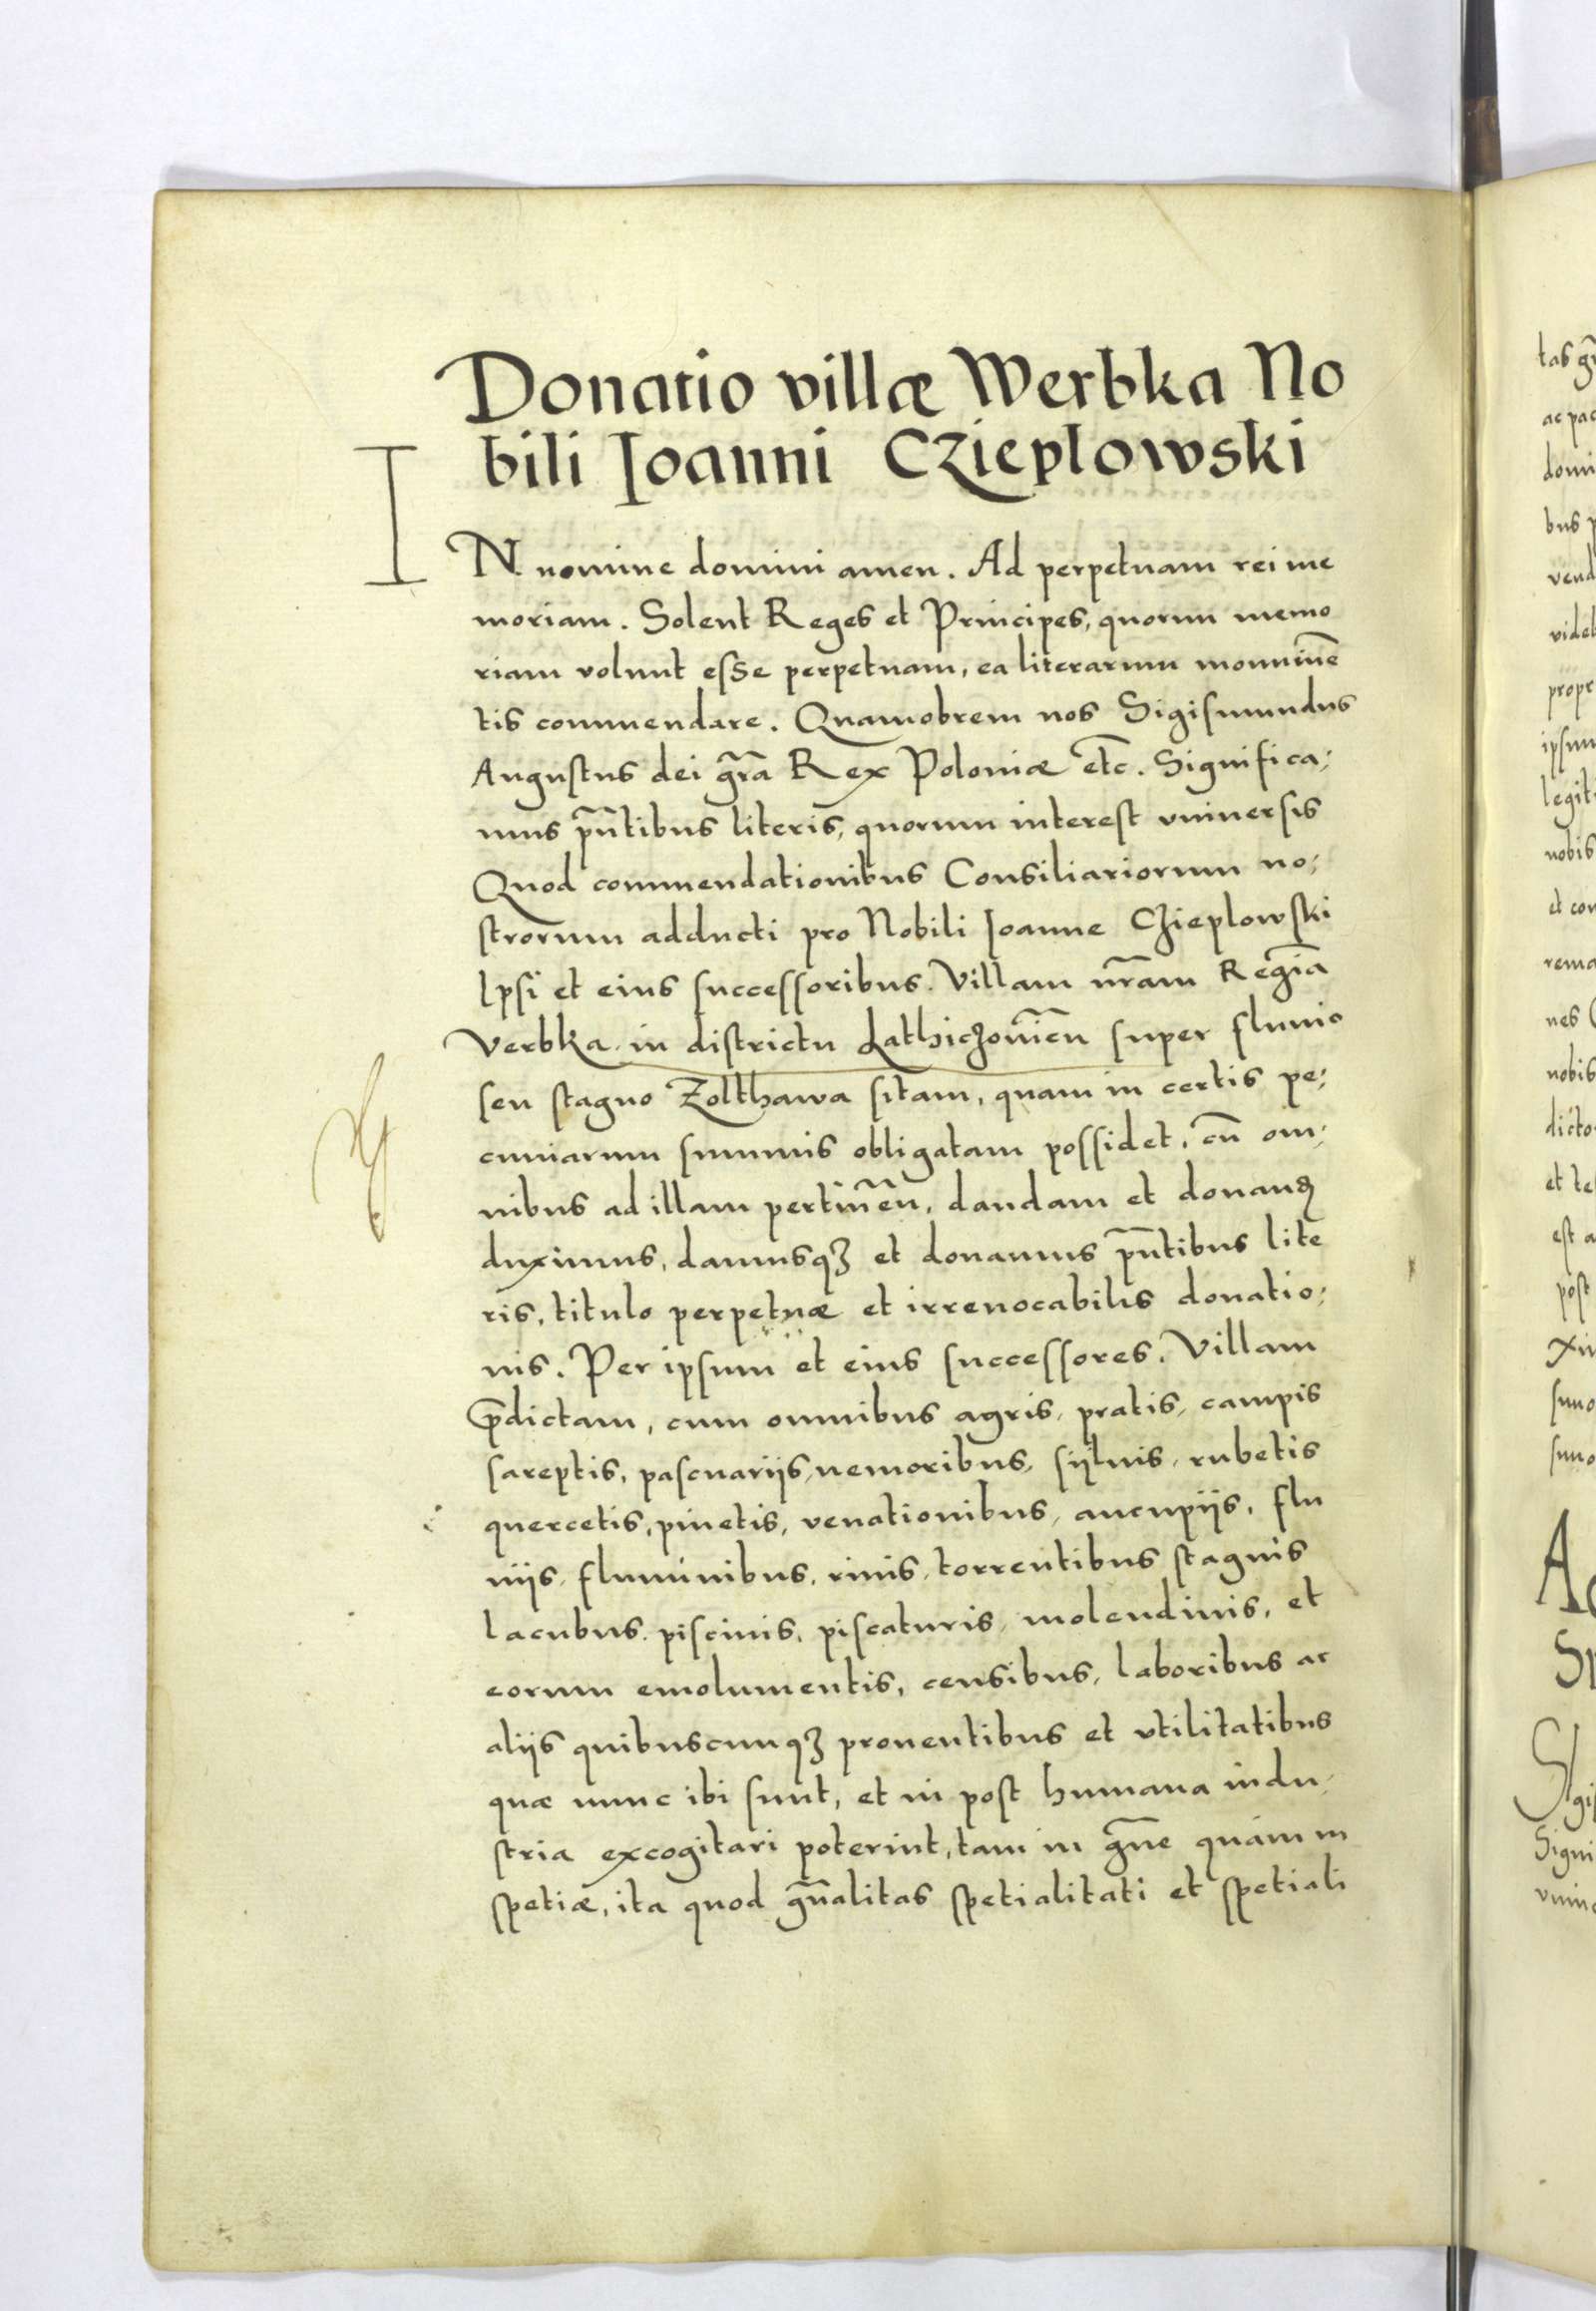 Donatio villæ Werbka No
bili Ioanni Czieplowski
IN nomine domini amen. Ad perpetuam rei me
moriam. Solent Reges et Principes, quorum memo
riam volunt esse perpetuam, ea literarum monumē
tis commendare. Quamobrem nos Sigismundus
Augustus dei gr̃a Rex Poloniæ etc̃. Significa;
mus pñtibus literis, quorum interest vniuersis
Quod commendationibus Consiliariorum no;
strorum adducti pro Nobili Ioanne Czieplowski
Ipsi et eius successoribus. Villam nr̃am Regiã
Verbka in districtu Lathiczouieñ super fluuio
seu stagno Zolthawa sitam, quam in certis pe;
cuniarum summis obligatam possidet, cũ om;
nibus ad illam pertineñ, dandam et donanꝗ
duximus, damusqꝫ et donamus pñtibus lite
ris, titulo perpetuæ et irreuocabilis donatio;
nis. Per ipsum et eius successores. Villam
p̃dictam, cum omnibus agris, pratis, campis
sareptis, pascuariis, nemoribus, siiluis, rubetis
quercetis, pinetis, venationibus, aucupiis, flu
uiis, fluminibus, riuis, torrentibus stagnis
lacubus piscinis, piscaturis, molendinis, et
eorum emolumentis, censibus, laboribus ac
aliis quibuscunqꝫ prouentibus et vtilitatibus
quæ nunc ibi sunt, et in post humana indu;
stria excogitari poterint, tam in gñe quam in
spetiæ, ita quod gñalitas spetialitati et spetiali